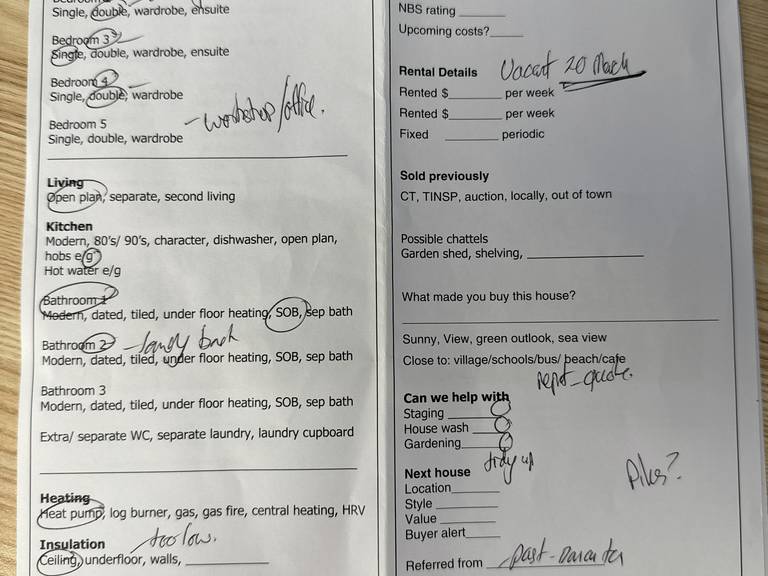 Single, double, wardrobe, ensuite
Bedroom 3
Single, double, wardrobe, ensuite
Bedroom 4
Single, double, wardrobe
- workshop/office.
Bedroom 5
Single, double, wardrobe
Living
Open plan, separate, second living
Kitchen
Modern, 80's/ 90's, character, dishwasher, open plan,
hobs e/g
Hot water e/g
Bathroom 1
Modern, dated, tiled, under floor heating, SOB, sep bath
Bathroom 2
Modern, dated, tiled, under floor heating, SOB, sep bath
Bathroom 3
Modern, dated, tiled, under floor heating, SOB, sep bath
Extra/ separate WC, separate laundry, laundry cupboard
Heating
Heat pump, log burner, gas, gas fire, central heating, HRV
Insulation - too low.
Ceiling, underfloor, walls, ____________
NBS rating ______
Upcoming costs?____
Rental Details Vacant 20 March
Rented $_______ per week
Rented $_______ per week
Fixed _______ periodic
Sold previously
CT, TINSP, auction, locally, out of town
Possible chattels
Garden shed, shelving, ______________
What made you buy this house?
Sunny, View, green outlook, sea view
Close to: village/schools/bus/ beach/cafe
Can we help with
Staging ______
House wash ____
Gardening_____
tidy up
Next house
Piles?
Location______
Style _______
Value _______
Buyer alert____
Referred from past